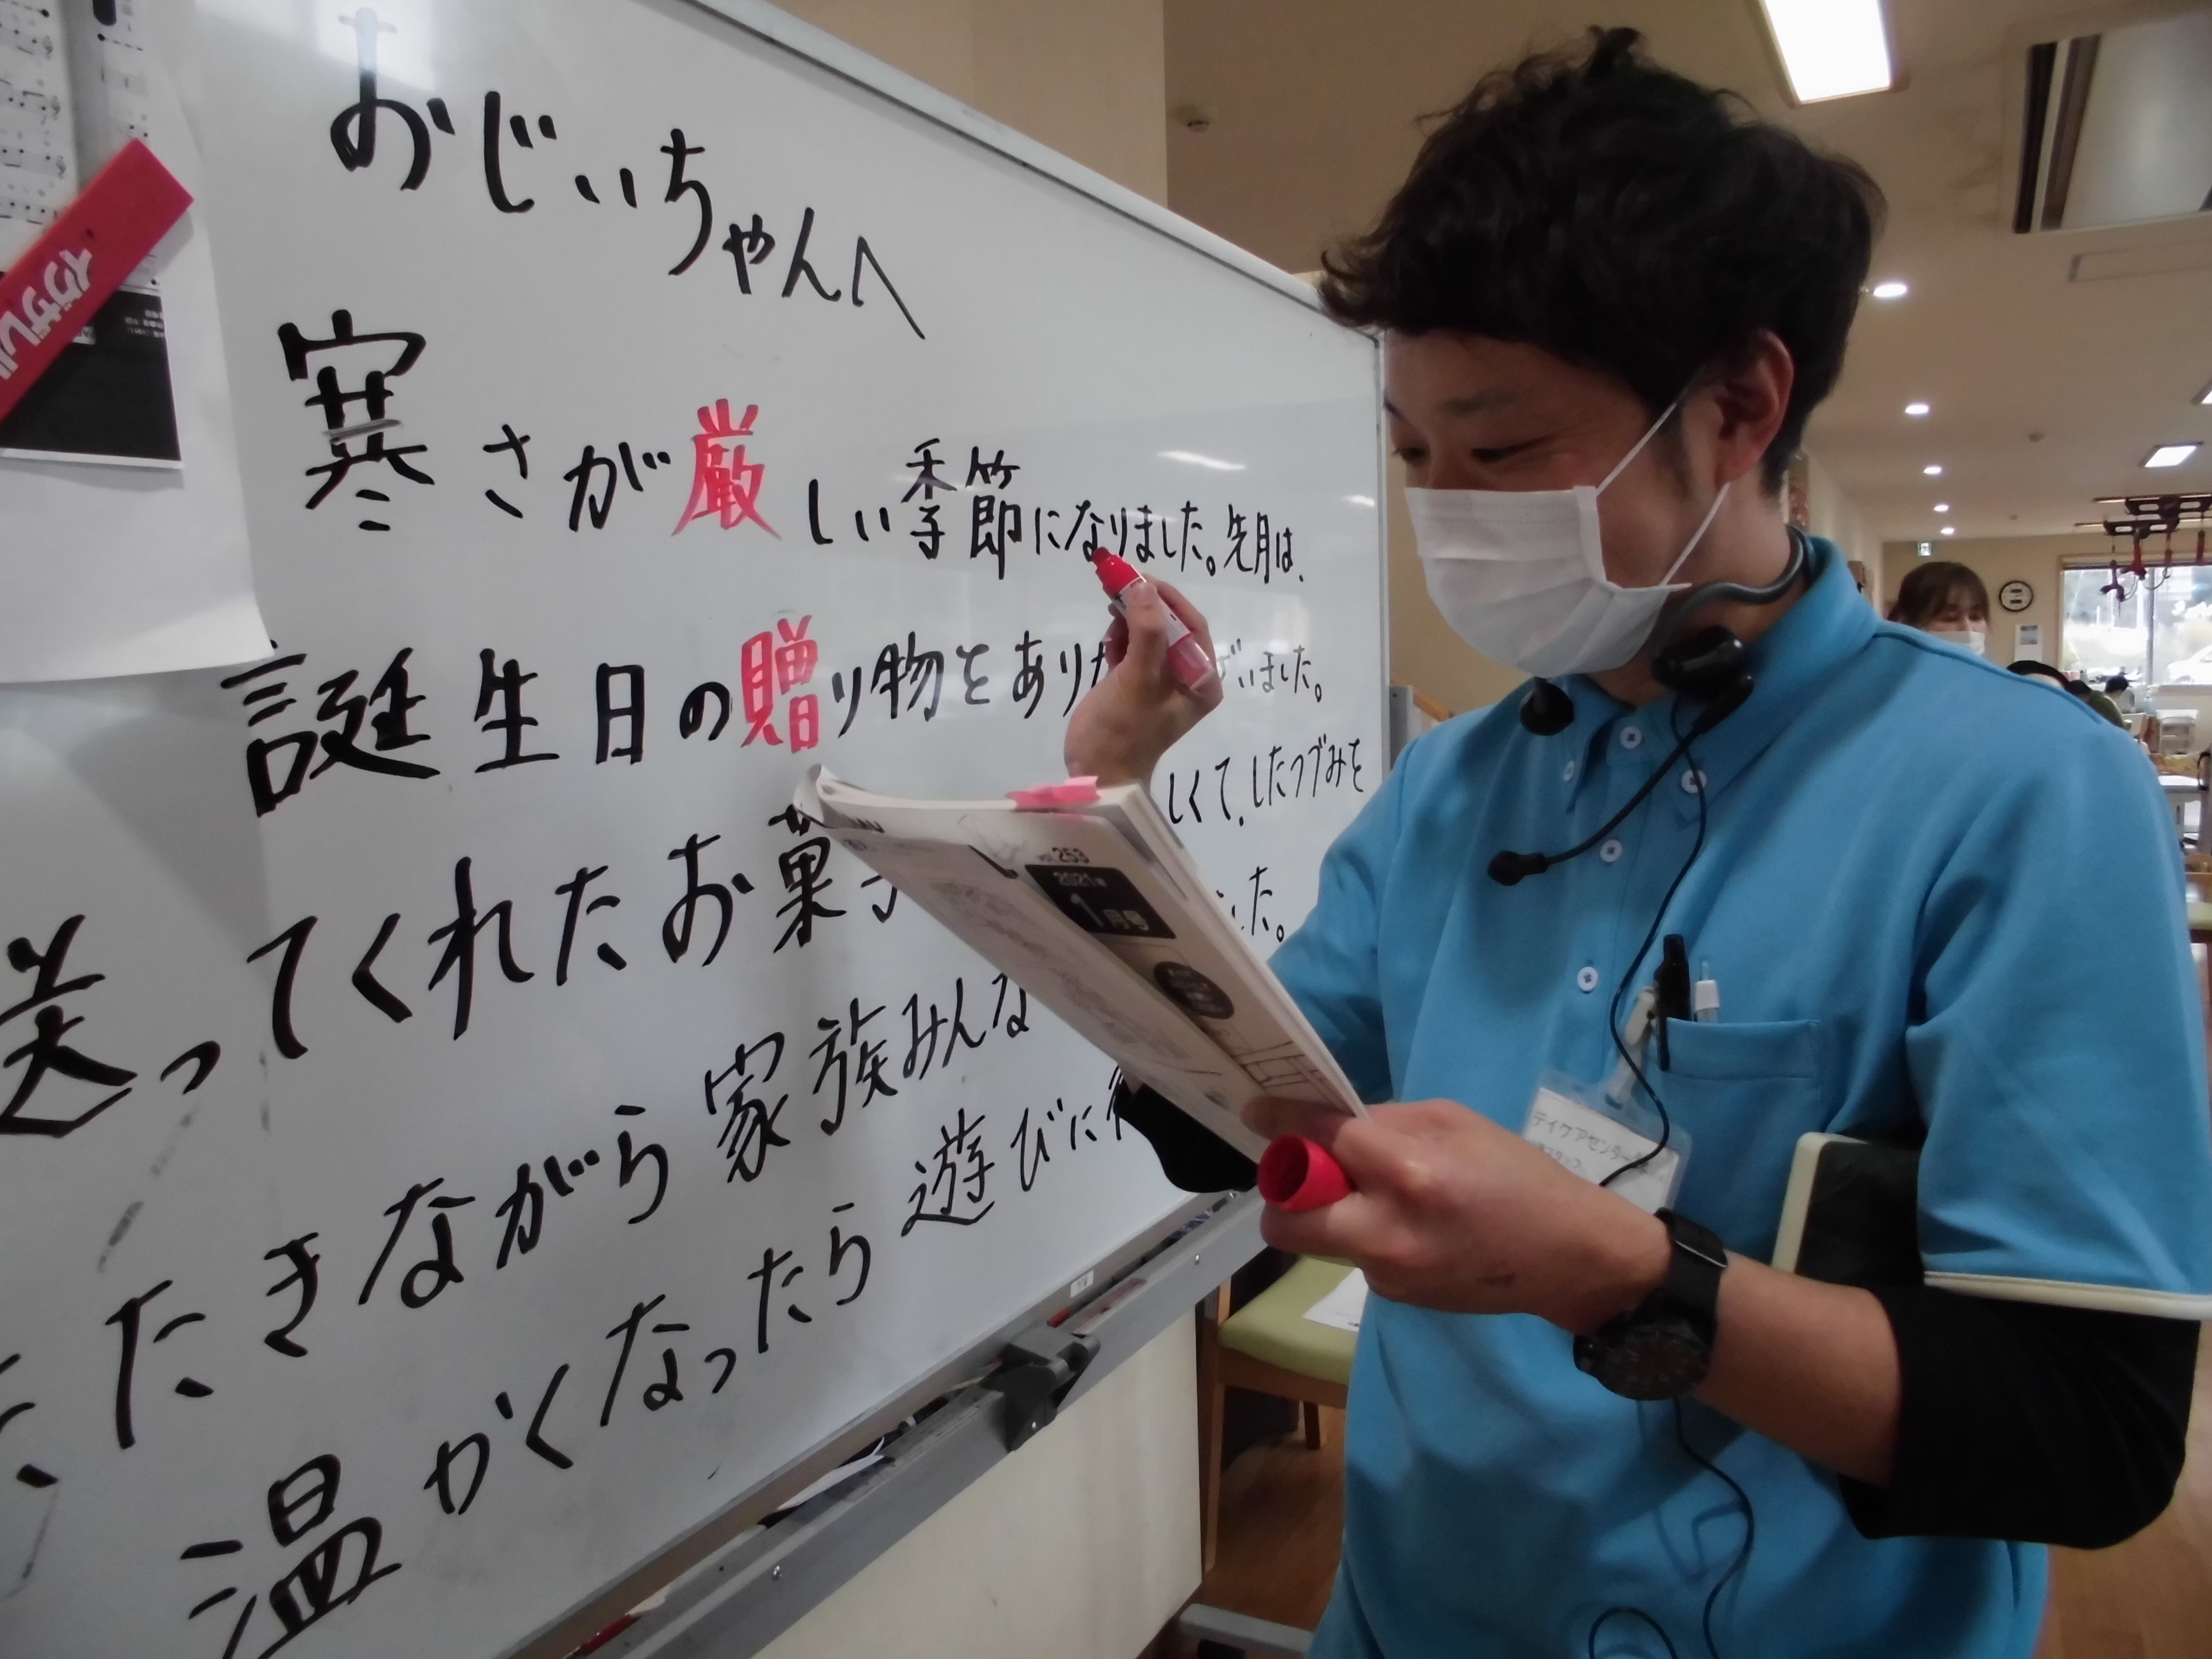 おじいちゃんへ
寒さが厳しい季節になりました。先月は、
誕生日の贈り物をありがいました。
送ってくれたお菓子しくて、したつづみを
たきながら家族みんなた。
温かくなったら遊びに
イグザレルト
vol.253
2021年
1月号
デイケアセンター